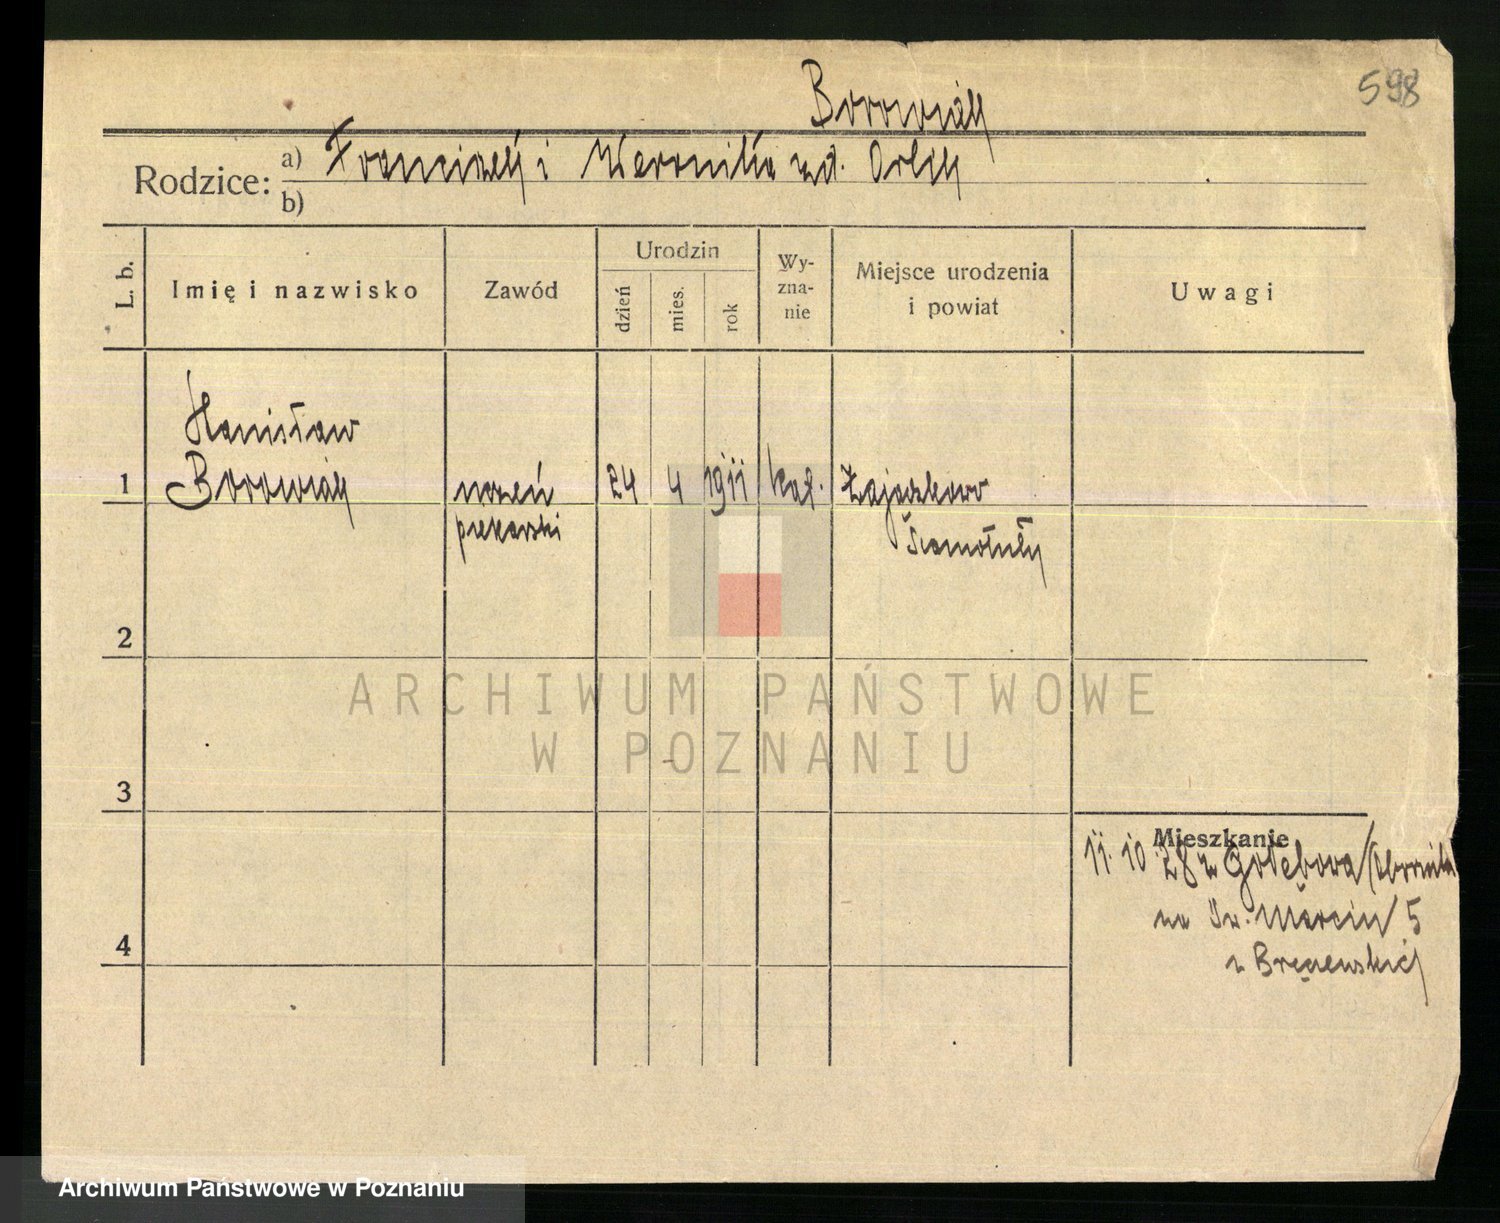 598
Borowiak
Rodzice: a) Franciszek i Weronika zd. Orlik
b)
L. b.
Imię i nazwisko
Zawód
Urodzin
dzień
mies.
rok
Wy-
zna-
nie
Miejsce urodzenia
i powiat
Uwagi
Stanisław
1 Borowiak uczeń 24 4 1911 kat. Łajączkowo
piekarski Szamotuły
2
ARCHIWUM PAŃSTWOWE
W POZNANIU
3
Mieszkanie
11. 10. 28 z Gołębowa /Oborniki
na Św. Marcin 5
4
Archiwum Państwowe w Poznaniu